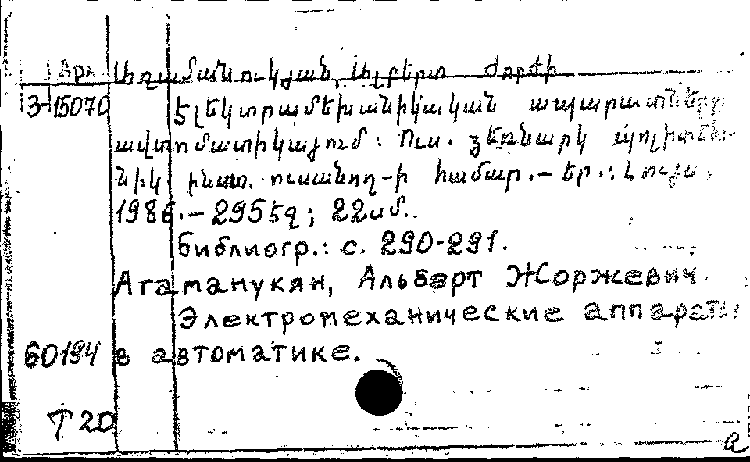 Арм Աղամանուկյան, Ալբերտ Ժորժի
3-15070 Էլեկտրամեխանիկական ապարատները
ավտոմատիկայում : Ուս. ձեռնարկ պոլիտեխ-
նիկ. ինստ. ուսանող-ի համար.- Եր.: Լույս,
1986.- 295 էջ ; 22սմ.
Библиогр.: с. 290-291.
Агаманукян, Альберт Жоржевич.
Электромеханические аппараты
60194 в автоматике.
Т 20
а